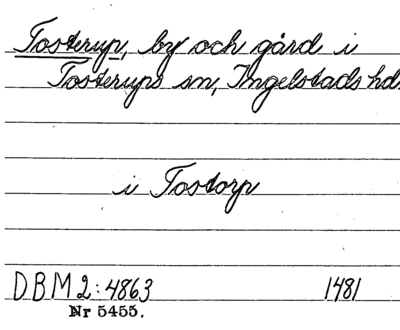 Tosterup, by och gård i
Tosterups sn, Ingelstads hd.
i Tostorp
DBM 2:4863 1481
Nr 5455.